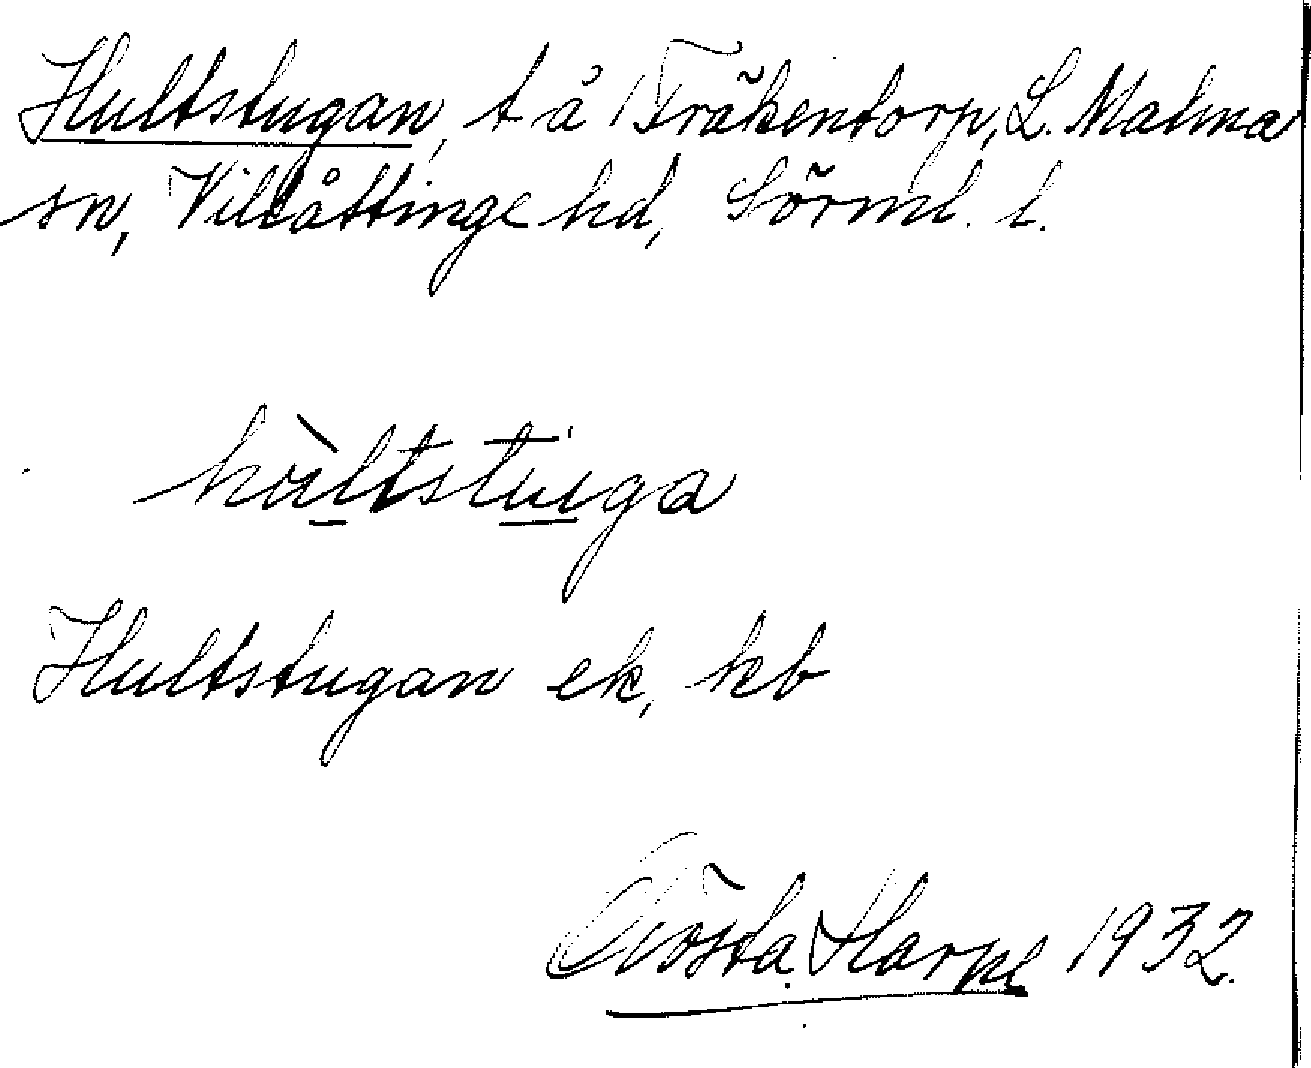 Hultstugan, t å Fräkentorp, L. Malma
sn, Villåttinge hd, Sörml. l.
hùltstuga
Hultstugan ek, kb
Gösta Harpe 1932.